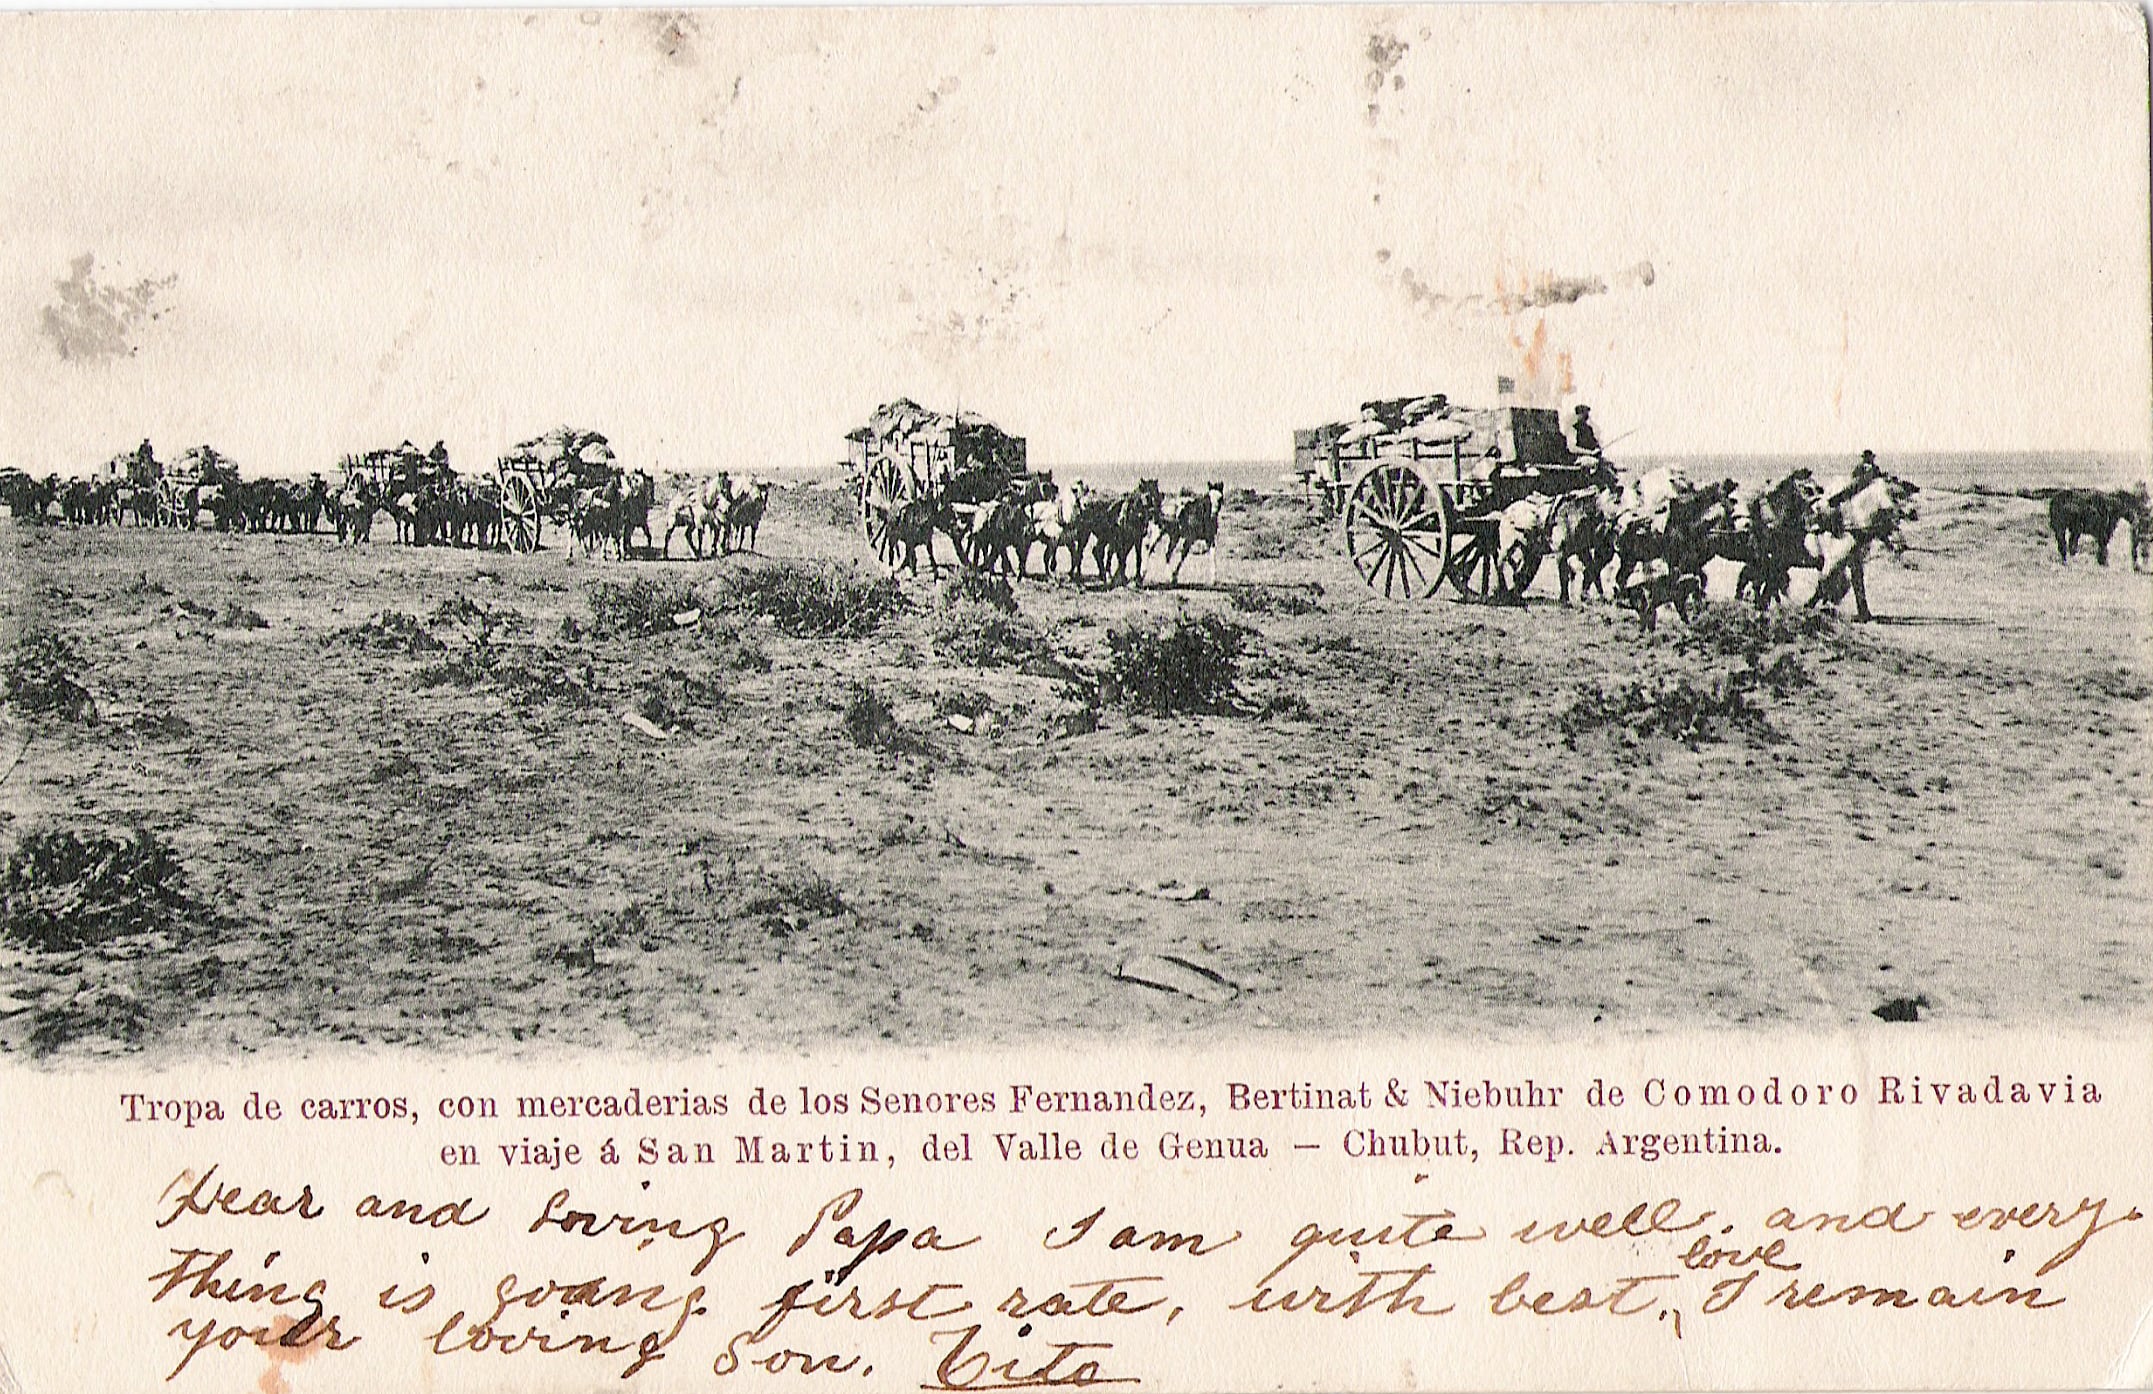 Tropa de carros, con mercaderias de los Senores Fernandez, Bertinat & Niebuhr de Comodoro Rivadavia
en viaje á San Martin, del Valle de Genua — Chubut, Rep. Argentina.
Dear and loving Papa I am quite well. and every
thing is going first rate, with best, love I remain
your loving Son. Tito